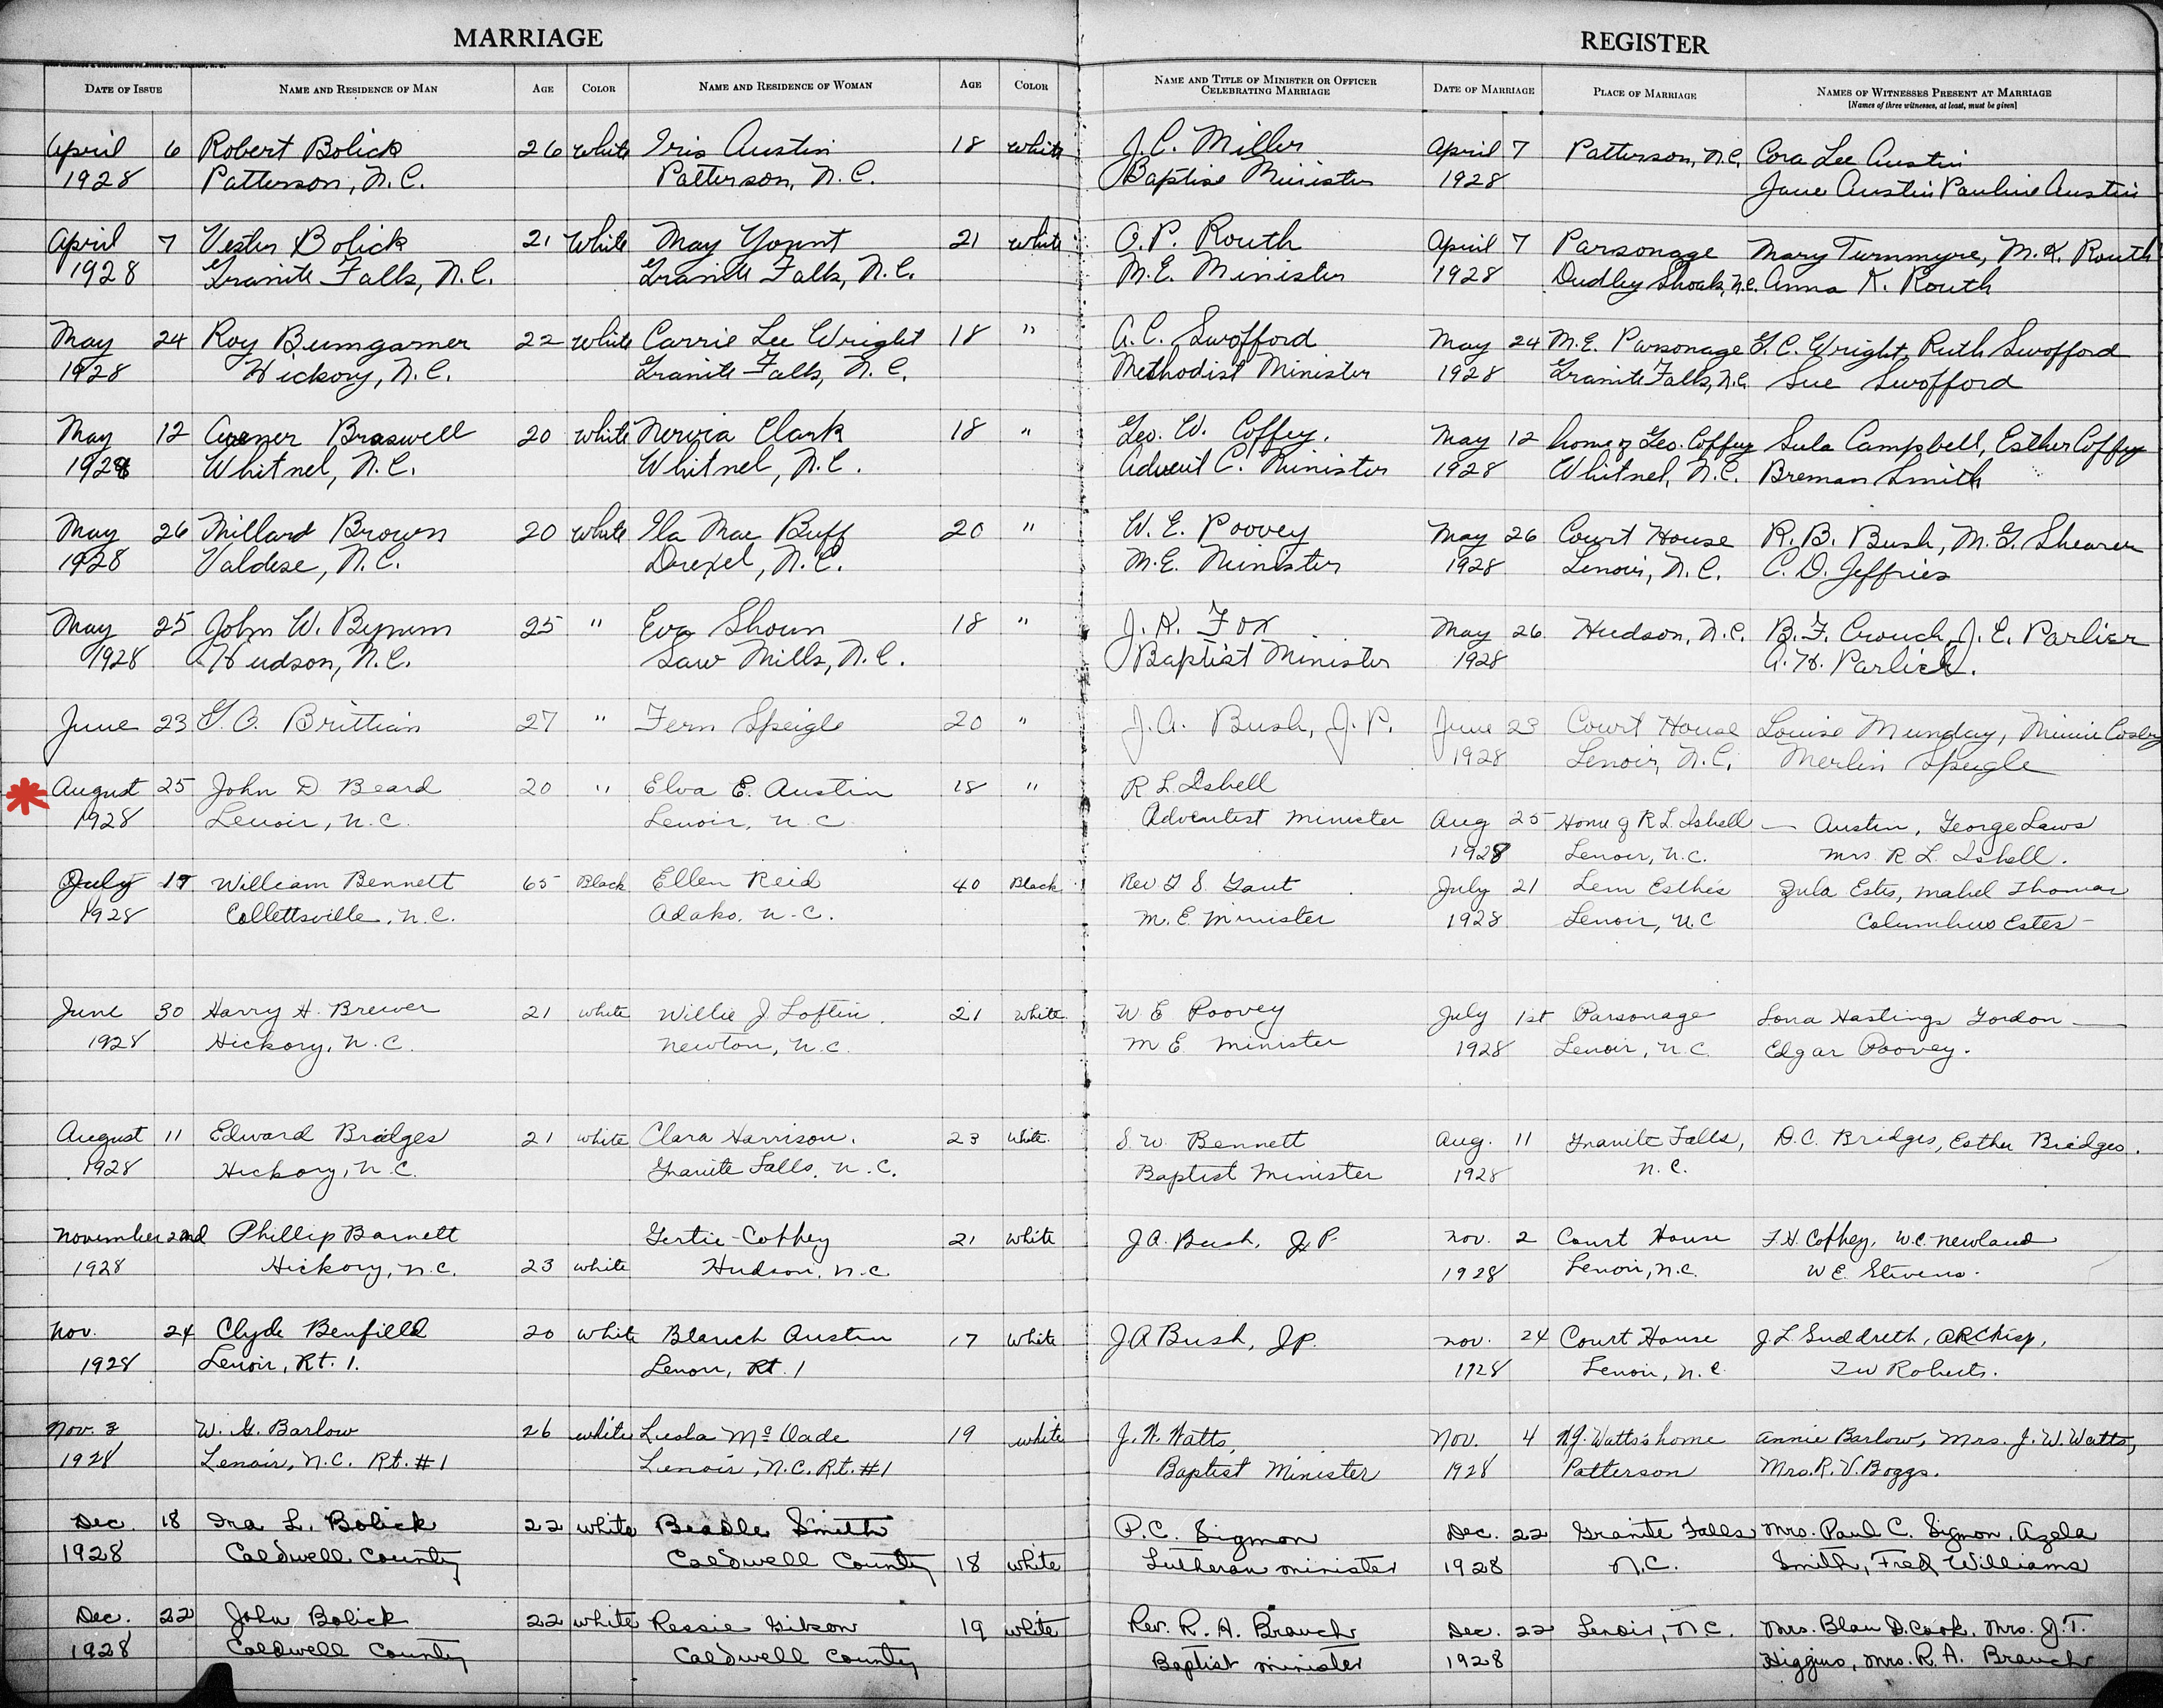 MARRIAGE REGISTER
DATE OF ISSUE NAME AND RESIDENCE OF MAN AGE COLOR NAME AND RESIDENCE OF WOMAN AGE COLOR NAME AND TITLE OF MINISTER OR OFFICER CELEBRATING MARRIAGE DATE OF MARRIAGE PLACE OF MARRIAGE NAMES OF WITNESSES PRESENT AT MARRIAGE
[Names of three witnesses, at least, must be given]
April 6 Robert Bolick 26 White Iris Austin 18 White J. C. Miller April 7 Patterson, N.C. Cora Lee Austin
1928 Patterson, N.C. Patterson, N.C. Baptist Minister 1928 Jane Austin Pauline Austin
April 7 Vester Bolick 21 White May Yount 21 White O. P. Routh April 7 Parsonage Mary Turnmyre, M. K. Routh
1928 Granite Falls, N.C. Granite Falls, N.C. M.E. Minister 1928 Dudley Shoals, N.C. Anna K. Routh
May 24 Roy Bumgarner 22 White Carrie Lee Wright 18 " A. C. Swofford May 24 M.E. Parsonage G. C. Wright, Ruth Swofford
1928 Hickory, N.C. Granite Falls, N.C. Methodist Minister 1928 Granite Falls, N.C. Sue Swofford
May 12 Braswell 20 White Nervia Clark 18 " Geo. W. Coffey. May 12 home of Geo. Coffey Sula Campbell, Esther Coffey
1928 Whitnel, N.C. Whitnel, N.C. Advent C. Minister 1928 Whitnel, N.C. Breman Smith
May 26 Millard Brown 20 White Ila Mae Buff 20 " W. E. Poovey May 26 Court House R. B. Bush, M. G. Shearer
1928 Valdese, N.C. Drexel, N.C. M.E. Minister 1928 Lenoir, N.C. C. D. Jeffries
May 25 John W. Bynum 25 " Eva Shoun 18 " J. K. Fox May 26 Hudson, N.C. B. F. Crouch, J. E. Parlier
1928 Hudson, N.C. Saw Mills, N.C. Baptist Minister 1928 A. H.
June 23 G. O. Brittian 27 " Fern Speigle 20 " J. A. Bush, J. P. June 23 Court House Louise Munday, Minnie Cosby
1928 Lenoir, N.C. Merlin Speigle
August 25 John D Beard 20 " Elva E. Austin 18 " R L. Isbell
1928 Lenoir, N.C. Lenoir, N.C. Adventist Minister Aug 25 Home of R L. Isbell — Austin, George Laws
1928 Lenoir, N.C. Mrs R L Isbell.
July 19 William Bennett 65 Black Ellen Reid 40 Black Rev G S. Gant July 21 Lem Esthes Zula Estes, Mabel Thomas
1928 Collettsville, N.C. Adako, N.C. M. E Minister 1928 Lenoir, N.C Columbus Estes
June 30 Harry H. Brewer 21 White Willie J Loftin. 21 White W E Poovey July 1st Parsonage Lona Hastings Gordon —
1928 Hickory, N.C. Newton, N.C. M E Minister 1928 Lenoir, N.C. Edgar Poovey.
August 11 Edward Bridges 21 White Clara Harrison. 23 White. S. W. Bennett Aug. 11 Granite Falls, D.C. Bridges, Esther Bridges.
1928 Hickory, N.C. Granite Falls, N.C. Baptist Minister 1928 N.C.
November 2nd Phillip Barnett Gertie Coffey 21 White J A. Bush, J P. Nov. 2 Court House F. H. Coffey, W.C. Newland
1928 Hickory, N.C. 23 White Hudson, N.C. 1928 Lenoir, N.C. W E. Stevens.
Nov. 24 Clyde Benfield 20 White Blanch Austin 17 White J A Bush, J P. Nov. 24 Court House J. L. Suddreth, A R Crisp,
1928 Lenoir, Rt. 1. Lenoir, Rt. 1 1928 Lenoir, N.C. Roberts.
Nov. 3 W. G. Barlow 26 white McDade 19 white J. W. Watts, Nov. 4 Watts's home Annie Barlow, Mrs. J. W. Watts,
1928 Lenoir, N.C. Rt. #1 Lenoir, N.C. Rt. #1 Baptist Minister 1928 Patterson Mrs. R. V. Boggs.
Dec. 18 Ira L. Bolick 22 white Beadle Smith P. C. Sigmon Dec. 22 Granite Falls Mrs. Paul C. Sigmon, Azela
1928 Caldwell County Caldwell County 18 white Lutheran minister 1928 N.C. Smith, Fred Williams
Dec. 22 John Bolick 22 white Ressie Gibson 19 white Rev. R. A. Branch Dec. 22 Lenoir, N.C. Mrs. Blan D. Cook, Mrs. J. T.
1928 Caldwell County Caldwell County Baptist minister 1928 Higgins, Mrs. R. A. Branch